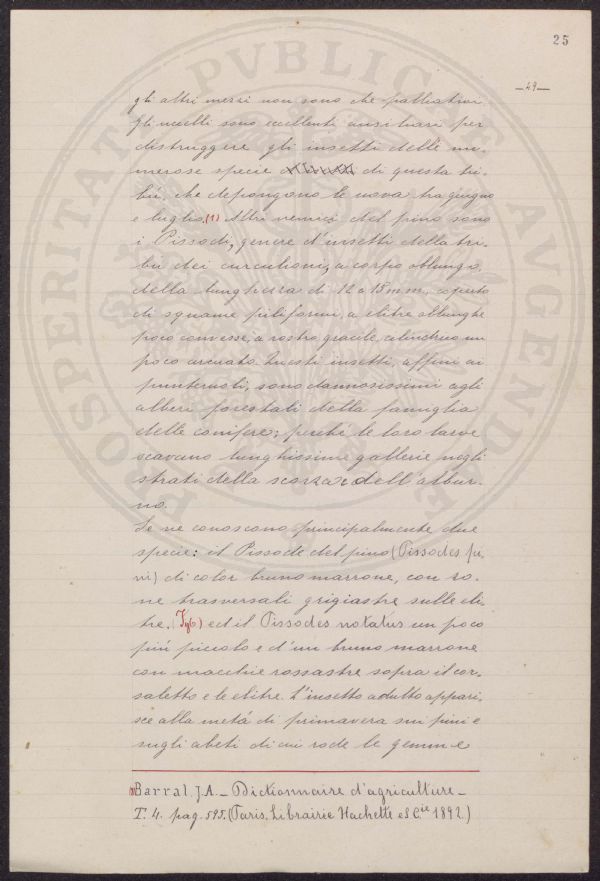 25
—49—
gli altri mezzi non sono che palliativi.
Gli uccelli sono eccellenti ausiliari per
distruggere gli insetti delle nu-
merose specie di questa tri-
bù, che depongono le uova tra giugno
e luglio.(1) Altri nemici del pino sono
i Pissodi, genere d'insetti della tri-
bù dei curculioni, a corpo oblungo,
della lunghezza di 12 a 15 mm, coperto
di squame piliformi, a elitre oblunghe
poco convesse, a rostro gracile, cilindrico un
poco arcuato. Questi insetti, affini ai
punteruoli, sono dannosissimi agli
alberi forestali della famiglia
delle conifere; perchè le loro larve
scavano lunghissime gallerie negli
strati della scorza e dell'albur-
no.
Se ne conoscono principalmente due
specie: il Pissode del pino (Pissodes pi-
ni) di color bruno marrone, con zo-
ne trasversali grigiastre sulle eli-
tre, ed il Pissodes notatus un poco
più piccolo e d'un bruno marrone
con macchie rossastre sopra il cor-
saletto e le elitre. L'insetto adulto appari-
sce alla metà di primavera sui pini e
sugli abeti di cui rode le gemme
(1) Barral. J.A. – Dictionnaire d'agriculture –
T. 4. pag. 595. (Paris, Librairie Hachette et C.ie 1892.)
PVBLICAE AVGENDAE PROSPERITATI